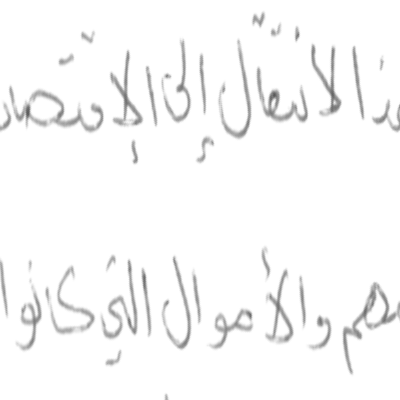 هذا الانتقال إلى الإقتصاد
والأموال التي كانوا